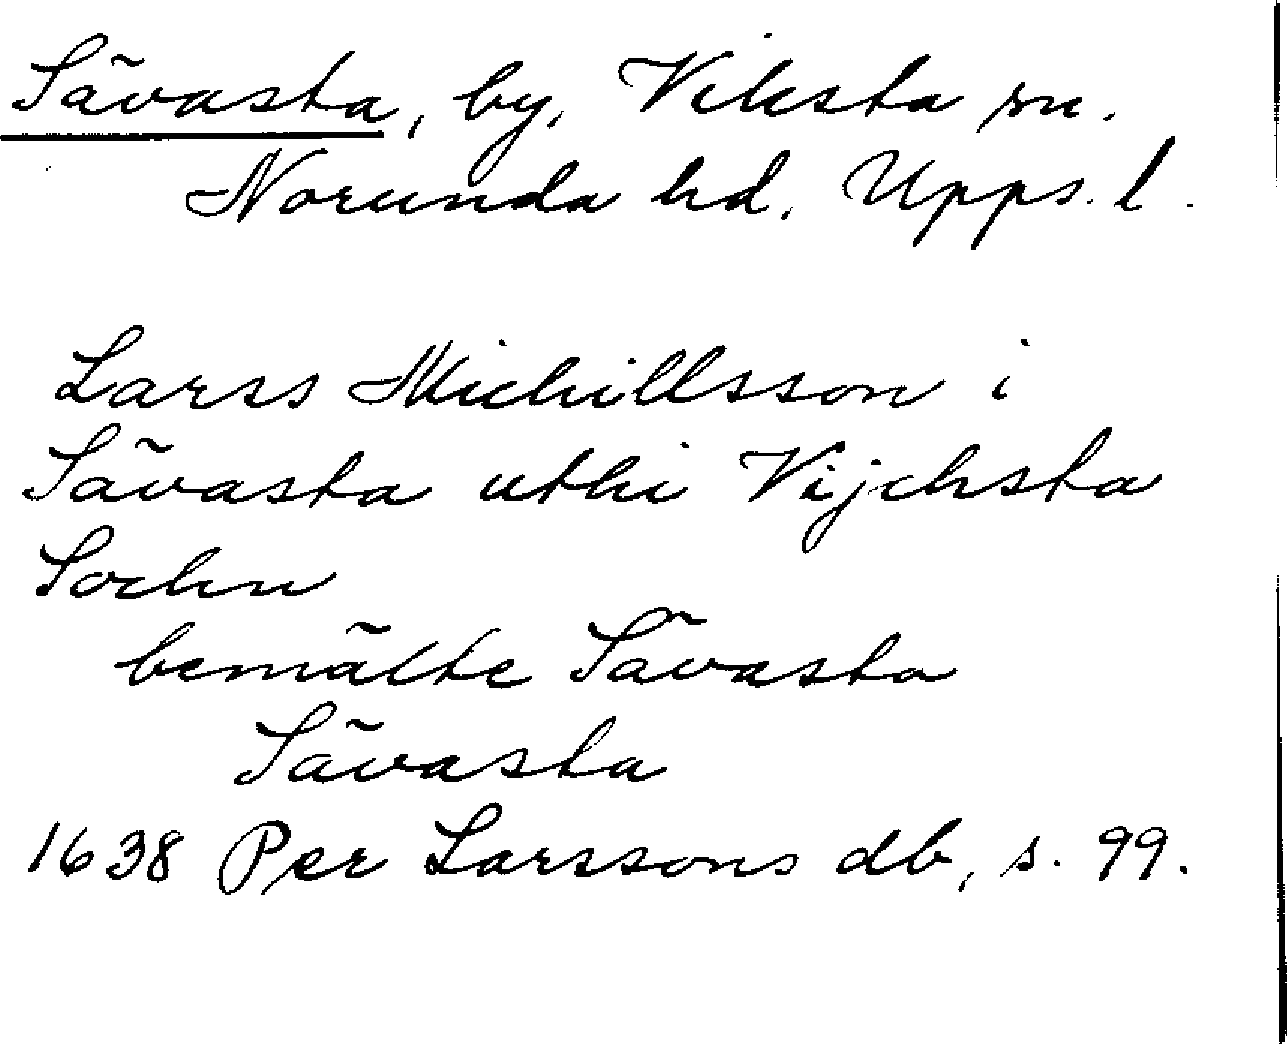 Sävasta, by, Viksta sn.
Norunda hd. Upps. l.
Larss Michillsson i
Sävasta uthi Vijchsta
Sochn
bemälte Sävasta
Sävasta
1638 Per Larssons db, s. 99.